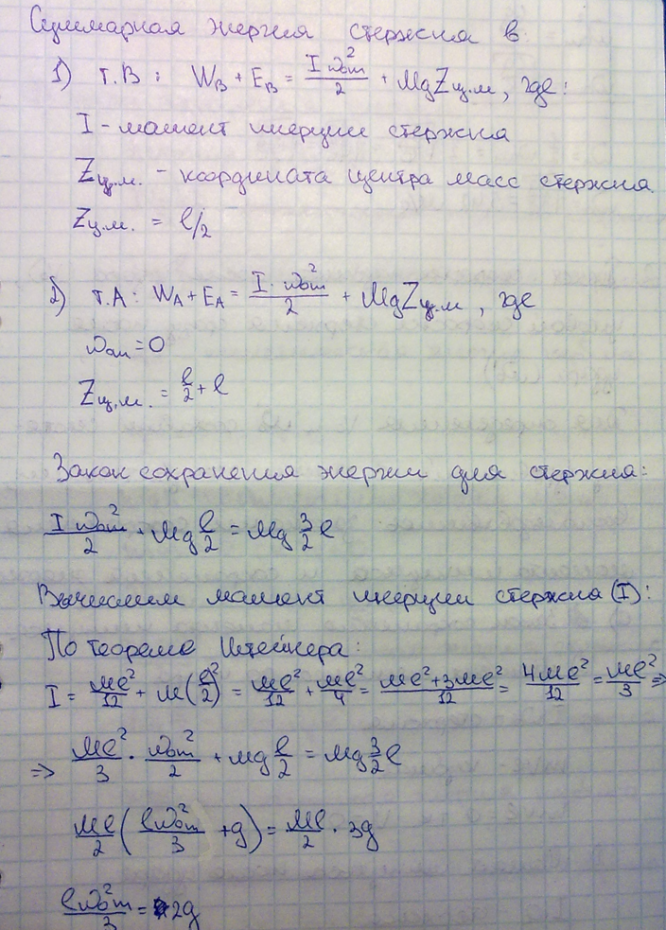 Суммарная энергия стержня в
1) т.В: W_B + E_B = I ω_от² / 2 + MgZц.м, где:
I - момент инерции стержня
Zц.м. - координата центра масс стержня
Zц.м. = l/2
2) т.А: W_A + E_A = I · ω_от² / 2 + MgZц.м, где
ω_от = 0
Zц.м. = l/2 + l
Закон сохранения энергии для стержня:
I ω_от² / 2 + Mg l/2 = Mg 3/2 l
Вычислим момент инерции стержня (I):
По теореме Штейнера:
I = Ml²/12 + M(l/2)² = Ml²/12 + Ml²/4 = (Ml² + 3Ml²)/12 = 4Ml²/12 = Ml²/3 ⇒
⇒ Ml²/3 · ω_от²/2 + Mg l/2 = Mg 3/2 l
Ml/2 (l ω_от²/3 + g) = Ml/2 · 3g
l ω_от²/3 = 2g